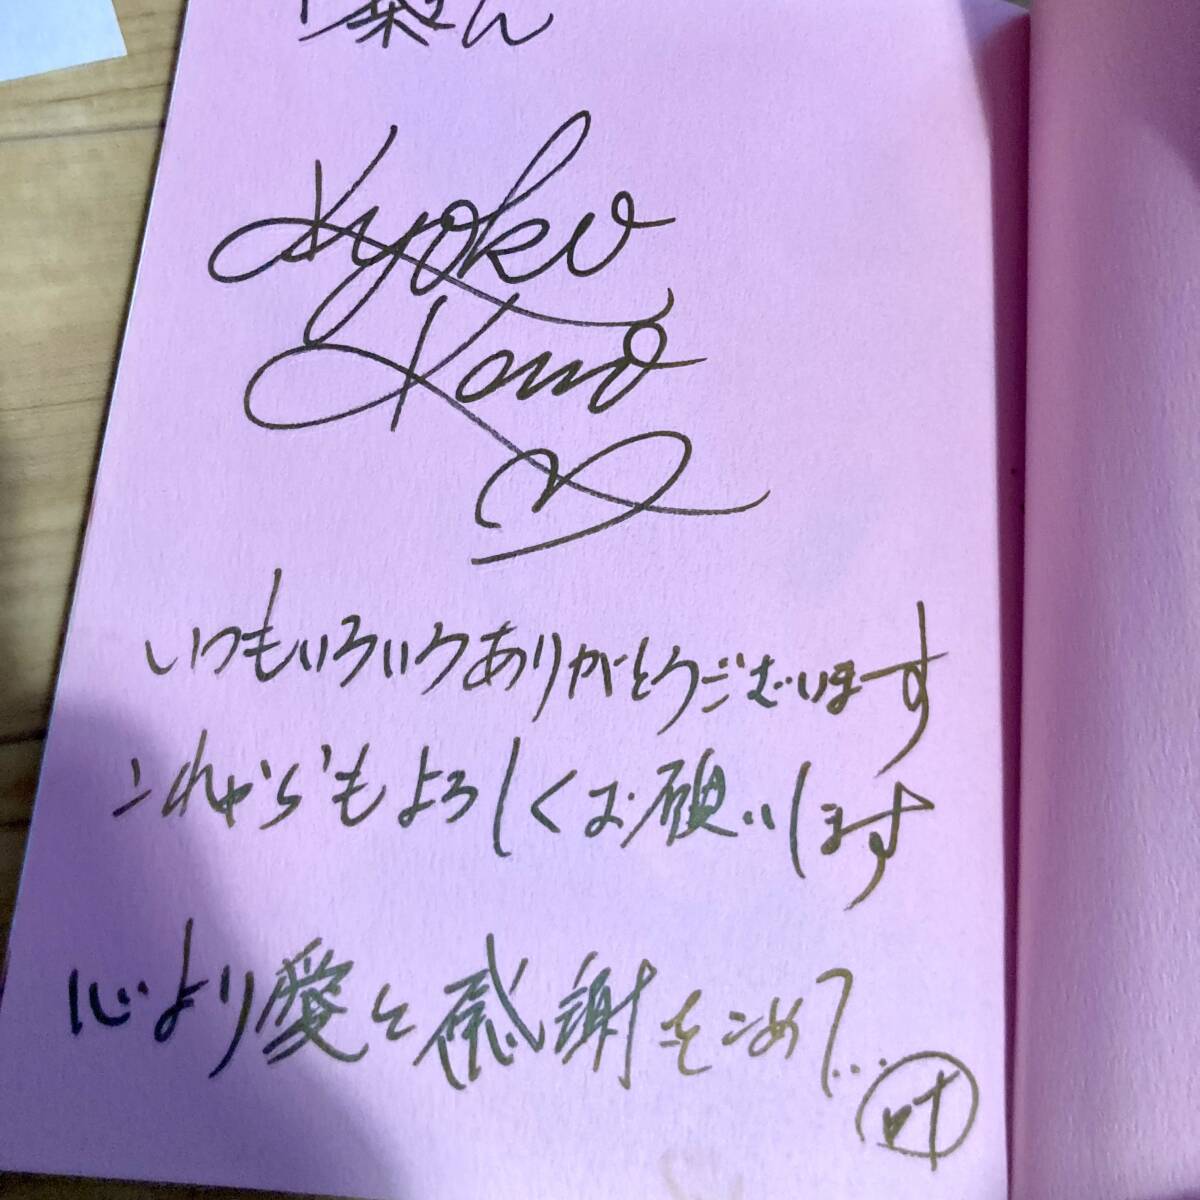 さん
Kyoko
Kono
いつもいろいろありがとうございます
これからもよろしくお願いします
心より愛と感謝をこめて...
叶